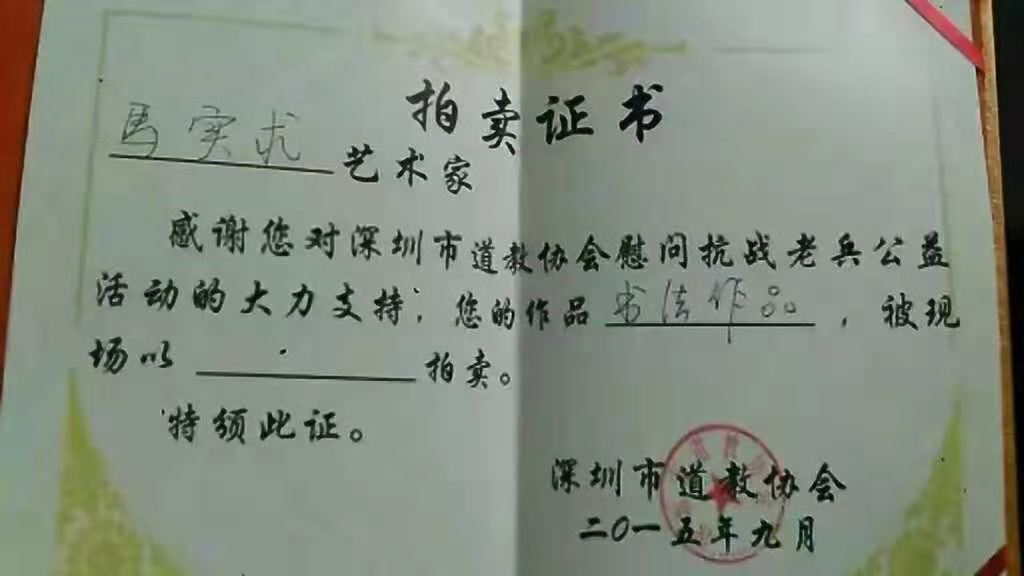 拍卖证书
马实求艺术家
感谢您对深圳市道教协会慰问抗战老兵公益
活动的大力支持,您的作品书法作品,被现
场以拍卖。
特颁此证。
深圳市道教协会
二〇一五年九月